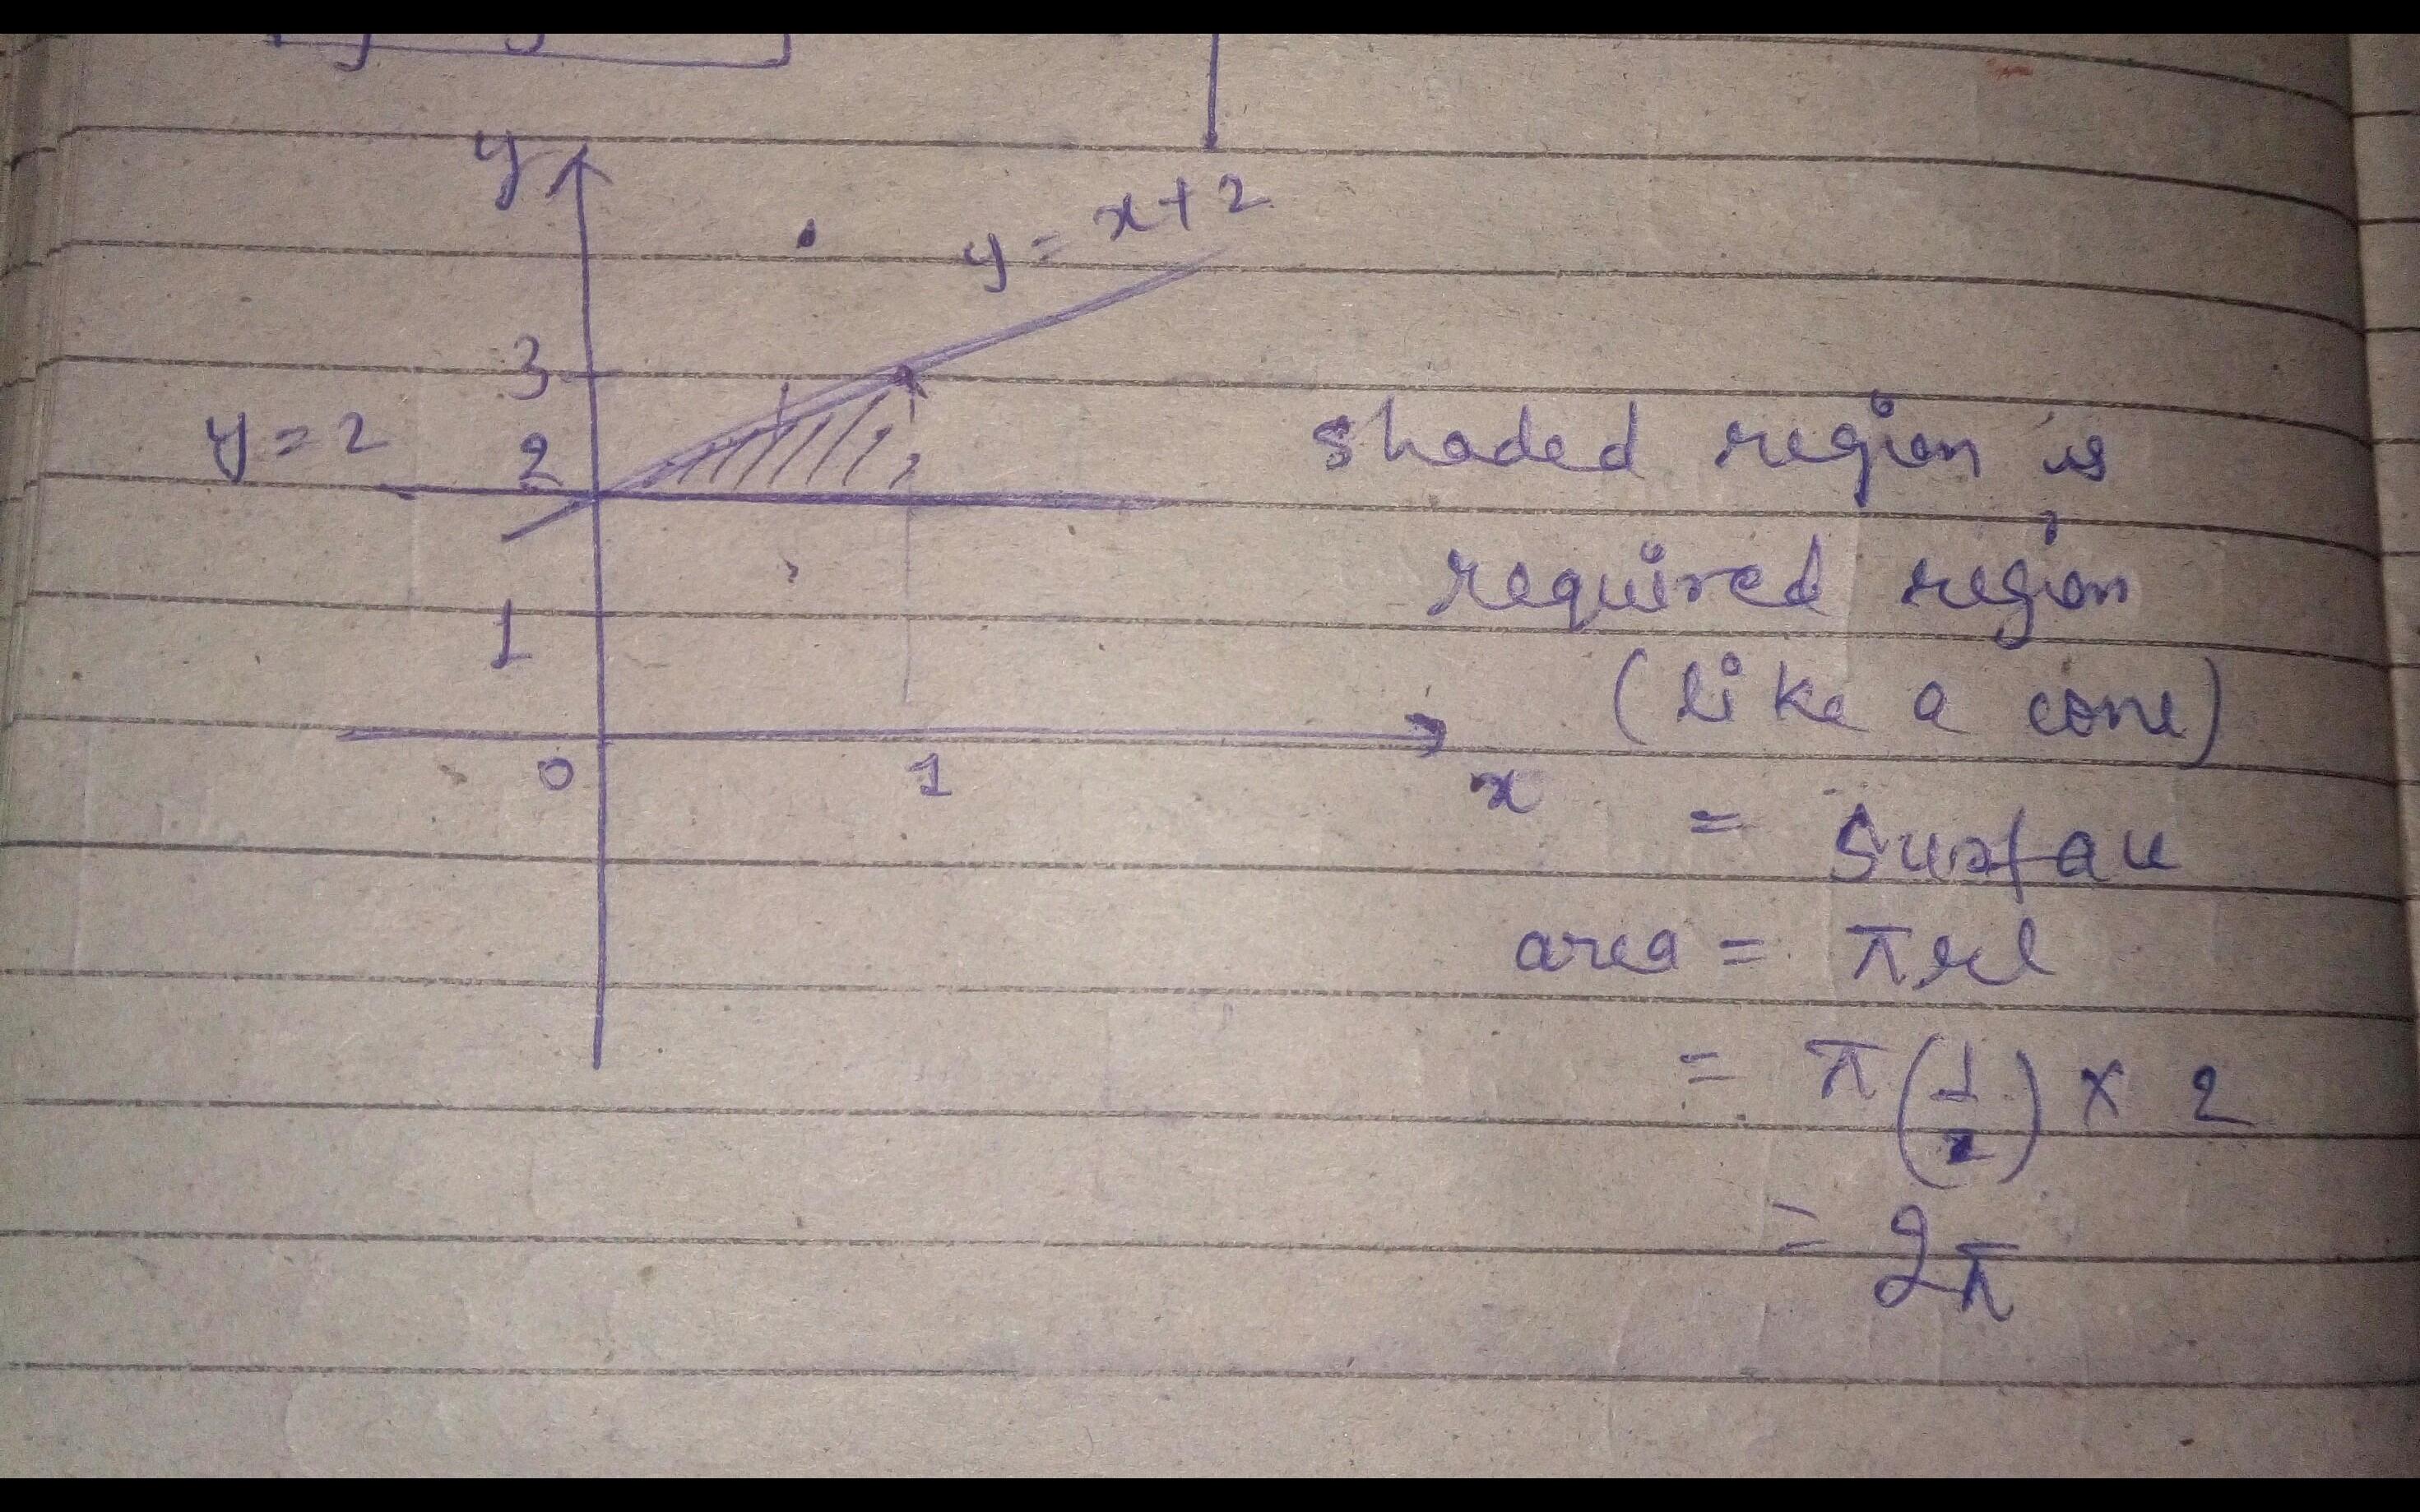 y
y = x+2
3
y = 2
2
1
0
1
x
shaded region is
required region
(like a cone)
= Surface
area = πrl
= π(1/2) × 2
= 2π